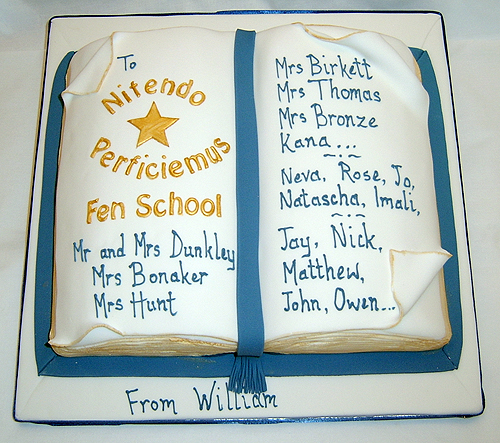 To
Nitendo
Perficiemus
Fen School
Mr and Mrs Dunkley
Mrs Bonaker
Mrs Hunt
Mrs Birkett
Mrs Thomas
Mrs Bronze
Kana...
Neva, Rose, Jo,
Natascha, Imali,
Jay, Nick,
Matthew,
John, Owen...
From William